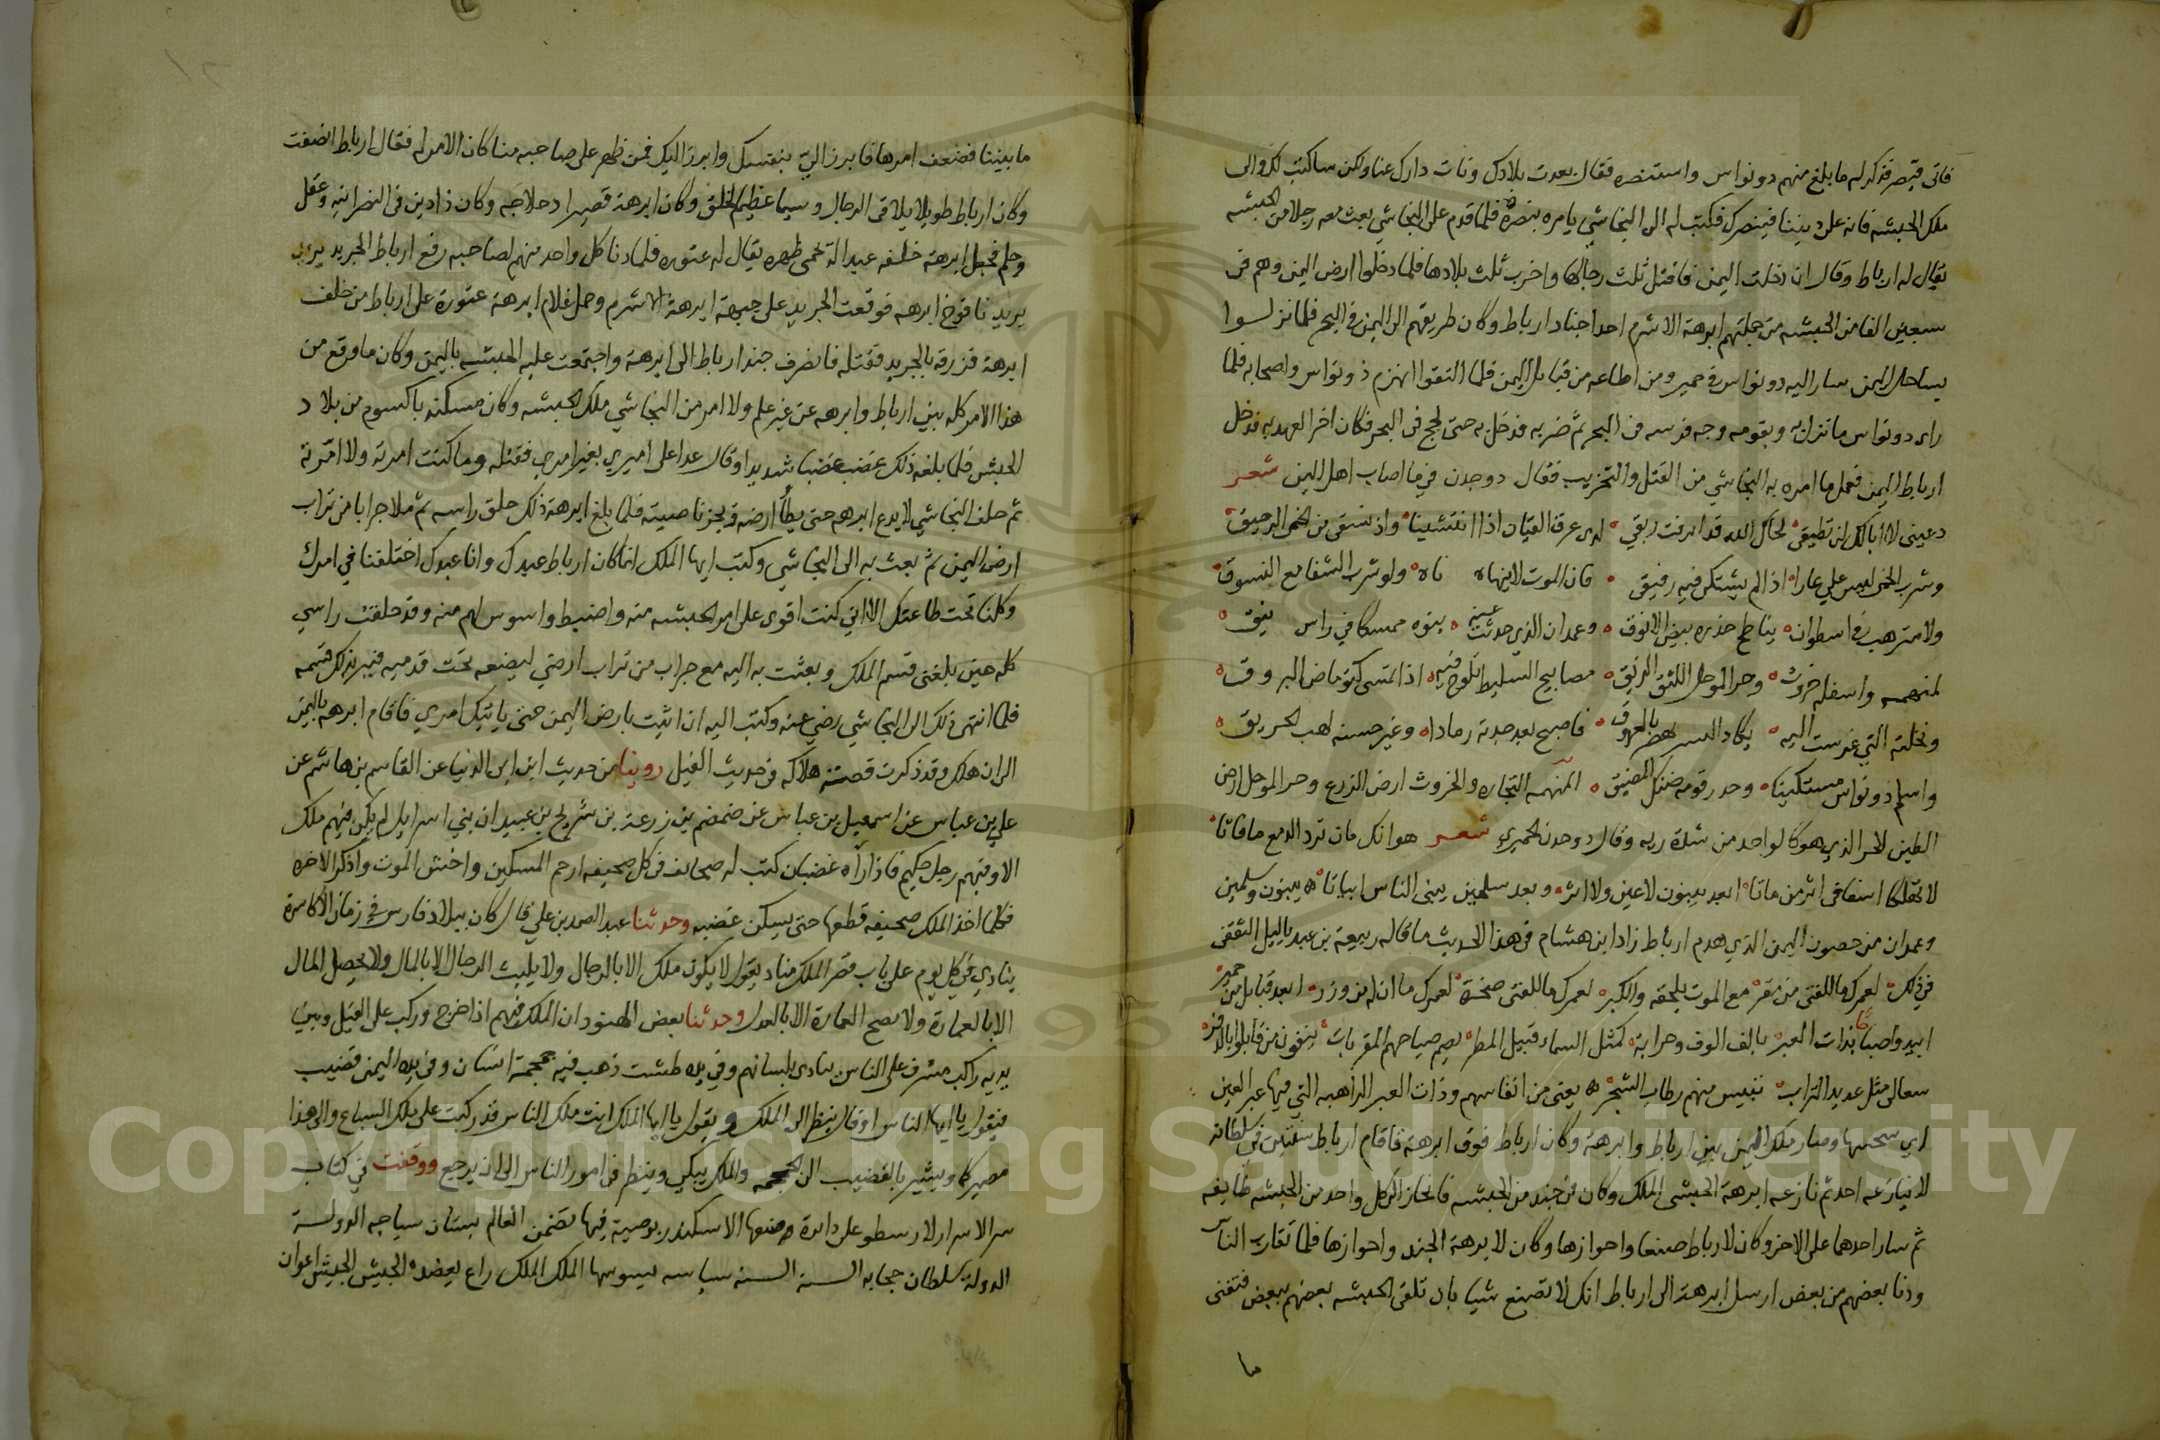 فاتى قيصر فذكر له ما بلغ منهم دو نواس واستنصره فقال بعدت بلادك ونات دارك عنا ولكن ساكتب لك والى
ملك الحبشه فانه على ديننا فينصرك فكتب له الى النجاشي يامره بنصره فلما قدم على النجاشي بعث معه رجلا من الحبشه
يقال له ارباط وقال ان دخلت اليمن فاقتل ثلث رجالها واخرب ثلث بلادها فلما دخلوا ارض اليمن وهم في
سبعين الفا من الحبشه من جملتهم ابرهة الاشرم احد اجناد ارباط وكان طريقهم الى اليمن في البحر فلما نزلوا
بساحل اليمن سار اليه دو نواس في حمير ومن اطاعه من قبائل اليمن فلما التقوا انهزم ذو نواس واصحابه فلما
راى دو نواس ما نزل به وبقومه وجه فرسه في البحر ثم ضربه فدخل به حتى لجج في البحر فكان اخر العهد به فدخل
ارباط اليمن فعمل ما امره به النجاشي من القتل والتخريب فقال دو جدن في ما اصاب اهل اليمن شعر
دعيني لا ابا لك لن تطيقي لحاك الله قد انزفت ريقي لدى عزف القيان اذا انتشينا واذ نسقى من الخمر الرحيق
وشرب الخمر ليس علي عارا اذا لم يشتكي فيه رفيقي فان الموت لا ينهاه ناه ولو شرب الشفا مع النسوق
ولا مترهب في اسطوان يناطح جدره بيض الانوق وغمدان الذي حدثت عنه بنوه ممسكا في راس نيق
لمنهمه واسفله جروث وحر الموحل اللثق الزليق مصابيح السليط تلوح فيه اذا تمسى كتوماض البروق
ونخلته التي غرست اليه يكاد البسر يهصر بالعذوق فاصبح بعد جدته رمادا وغير حسنه لهب الحريق
واسلم ذو نواس مستكينا وحذر قومه ضنك المضيق المنهمه التجاره والخروث ارض الزرع وحر الموحل ارض
الطين لاحر الذي هو كالواحد من شدة ريه وقال دو جدن الحميري شعر هوانك مان ترد الدمع مافاتا
لا تهلكا اسفا في اثر من ماتا ابعد بينون لا عين ولا اثر وبعد سلحين يبني الناس ابياتا بينون وسلحين
وغمدان من حصون اليمن الذي هدم ارباط زاد ابن هشام في هذا الحديث ما قاله ربيعة بن عبد ياليل الثقفي
في ذلك لعمرك ما للفتى من مقر مع الموت يلحقه والكبر لعمرك ما للفتى صخرة لعمرك ما ان له من وزر ابعد قبايل من حمير
ابيدوا صباحا بذات العبر بالف الوف وحرابة كمثل السماء قبيل المطر يصم صياحهم المقربات ينفون من قابلوا بالذفر
سعالى مثل عديد التراب تيبس منهم رطاب الشجر يعني من انفاسهم وذات العبر الداهيه التي فيها عبر العين
اي سخنها وصار ملك اليمن بين ارباط وابرهة وكان ارباط فوق ابرهة فاقام ارباط سنتين في سلطانه
لا ينازعه احد ثم نازعه ابرهة الحبشي الملك وكان في جند من الحبشه فانحاز الى كل واحد من الحبشه طايفه
ثم سار احدهما على الاخر وكان لارباط صنعا واحوازها وكان لابرهة الجند واحوازها فلما تقارب الناس
ودنا بعضهم من بعض ارسل ابرهة الى ارباط انك لا تصنع شيا بان تلقى الحبشه بعضهم ببعض فتفنى
ما
ما بيننا فضعف امرها فابرز الي بنفسك وابرز اليك فمن ظهر على صاحبه منا كان الامر له فقال ارباط انصفت
وكان ارباط طويلا يلاقى الرجال وسيما عظيم الخلق وكان ابرهة قصيرا دحلاجه وكان ذا دين في النصرانيه وعقل
وحلم فجعل ابرهة خلفه عبدا له تحمى ظهره يقال له عتوده فلما دنا كل واحد منهم لصاحبه رفع ارباط الحربه يريد
يريد نافوخ ابرهه فوقعت الحربه على جبهة ابرهة الاشرم وحمل غلام ابرهة عتودة على ارباط من خلف
ابرهة فزرقه بالحربه فقتله فانصرف جند ارباط الى ابرهة واجتمعت عليه الحبشه باليمن وكان ما وقع من
هذا الامر كله بين ارباط وابرهه عن غير علم ولا امر من النجاشي ملك الحبشه وكان مسكنه باكسوم من بلاد
الحبش فلما بلغه ذلك غضب غضبا شديدا وقال عدا على اميري بغير امري فقتله وما كنت امرته ولا امرته
ثم حلف النجاشي لا يدع ابرهه حتى يطأ ارضه ويجز ناصيته فلما بلغ ابرهة ذلك حلق راسه ثم ملا جرابا من تراب
ارض اليمن ثم بعث به الى النجاشي وكتب ايها الملك انما كان ارباط عبدك وانا عبدك اختلفنا في امرك
وكلنا تحت طاعتك الا اني كنت اقوى على امر الحبشه منه واضبط واسوس لهم منه وقد حلقت راسي
كله حين بلغني قسم الملك وبعثت به اليه مع جراب من تراب ارضي ليضعه تحت قدميه فيبر بذلك قسمه
فلما انتهى ذلك الى النجاشي رضي عنه وكتب اليه ان اثبت بارض اليمن حتى ياتيك امري فاقام ابرهه باليمن
الى ان هلك وقد ذكرت قصته هلاكه في حديث الفيل روينا من حديث ابن ابي الدنيا عن القاسم بن هاشم عن
علي بن عياش عن اسمعيل بن عياش عن ضمضم بن زرعة بن شريح بن عبيد ان بني اسرايل لم يكن فيهم ملك
الا وفيهم رجل حكيم فاذا رآه غضبان كتب له صحائف في كل صحيفه ارحم المسكين واخش الموت واذكر الاخره
فكلما اخذ الملك صحيفه قطعها حتى يسكن غضبه وحدثنا عبد الصمد بن علي قال كان ببلاد فارس في زمان الاكاسرة
ينادي في كل يوم على باب قصر الملك مناد يقول لا يكون ملك الا بالرجال ولا يلبث الرجال الا بالمال ولا يحصل المال
الا بالعمارة ولا يصح العمارة الا بالعدل وحدثنا بعض الهنود ان الملك فيهم اذا خرج وركب على الفيل وبين
يديه راكب مشرف على الناس ينادى بلسانهم وفي يده طشت ذهب فيه جمجمة انسان وفي يده اليمنى قضيب
فيقول يا ايها الناس او قال ينظر الى الملك ويقول يا ايها الملك انت ملك الناس قد ركبت على ملك السباع والى هذا
مصيرك ويشير بالقضيب الى الجمجمه والملك يبكي وينظر في امور الناس الى ان يرجع ووقفت في كتاب
سر الاسرار لارسطو على دائرة وضعها الاسكندر بوصية فيها تضمن العالم بستان سياجه الدولة
الدولة سلطان حجابه السنة السنه سياسه يسوسها الملك الملك راع يعضده الجيش الجيش اعوان
Copyright © King Saud University